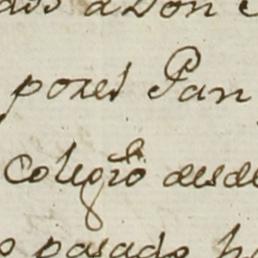 a Don
por el Pan
Colegio desde
pasado